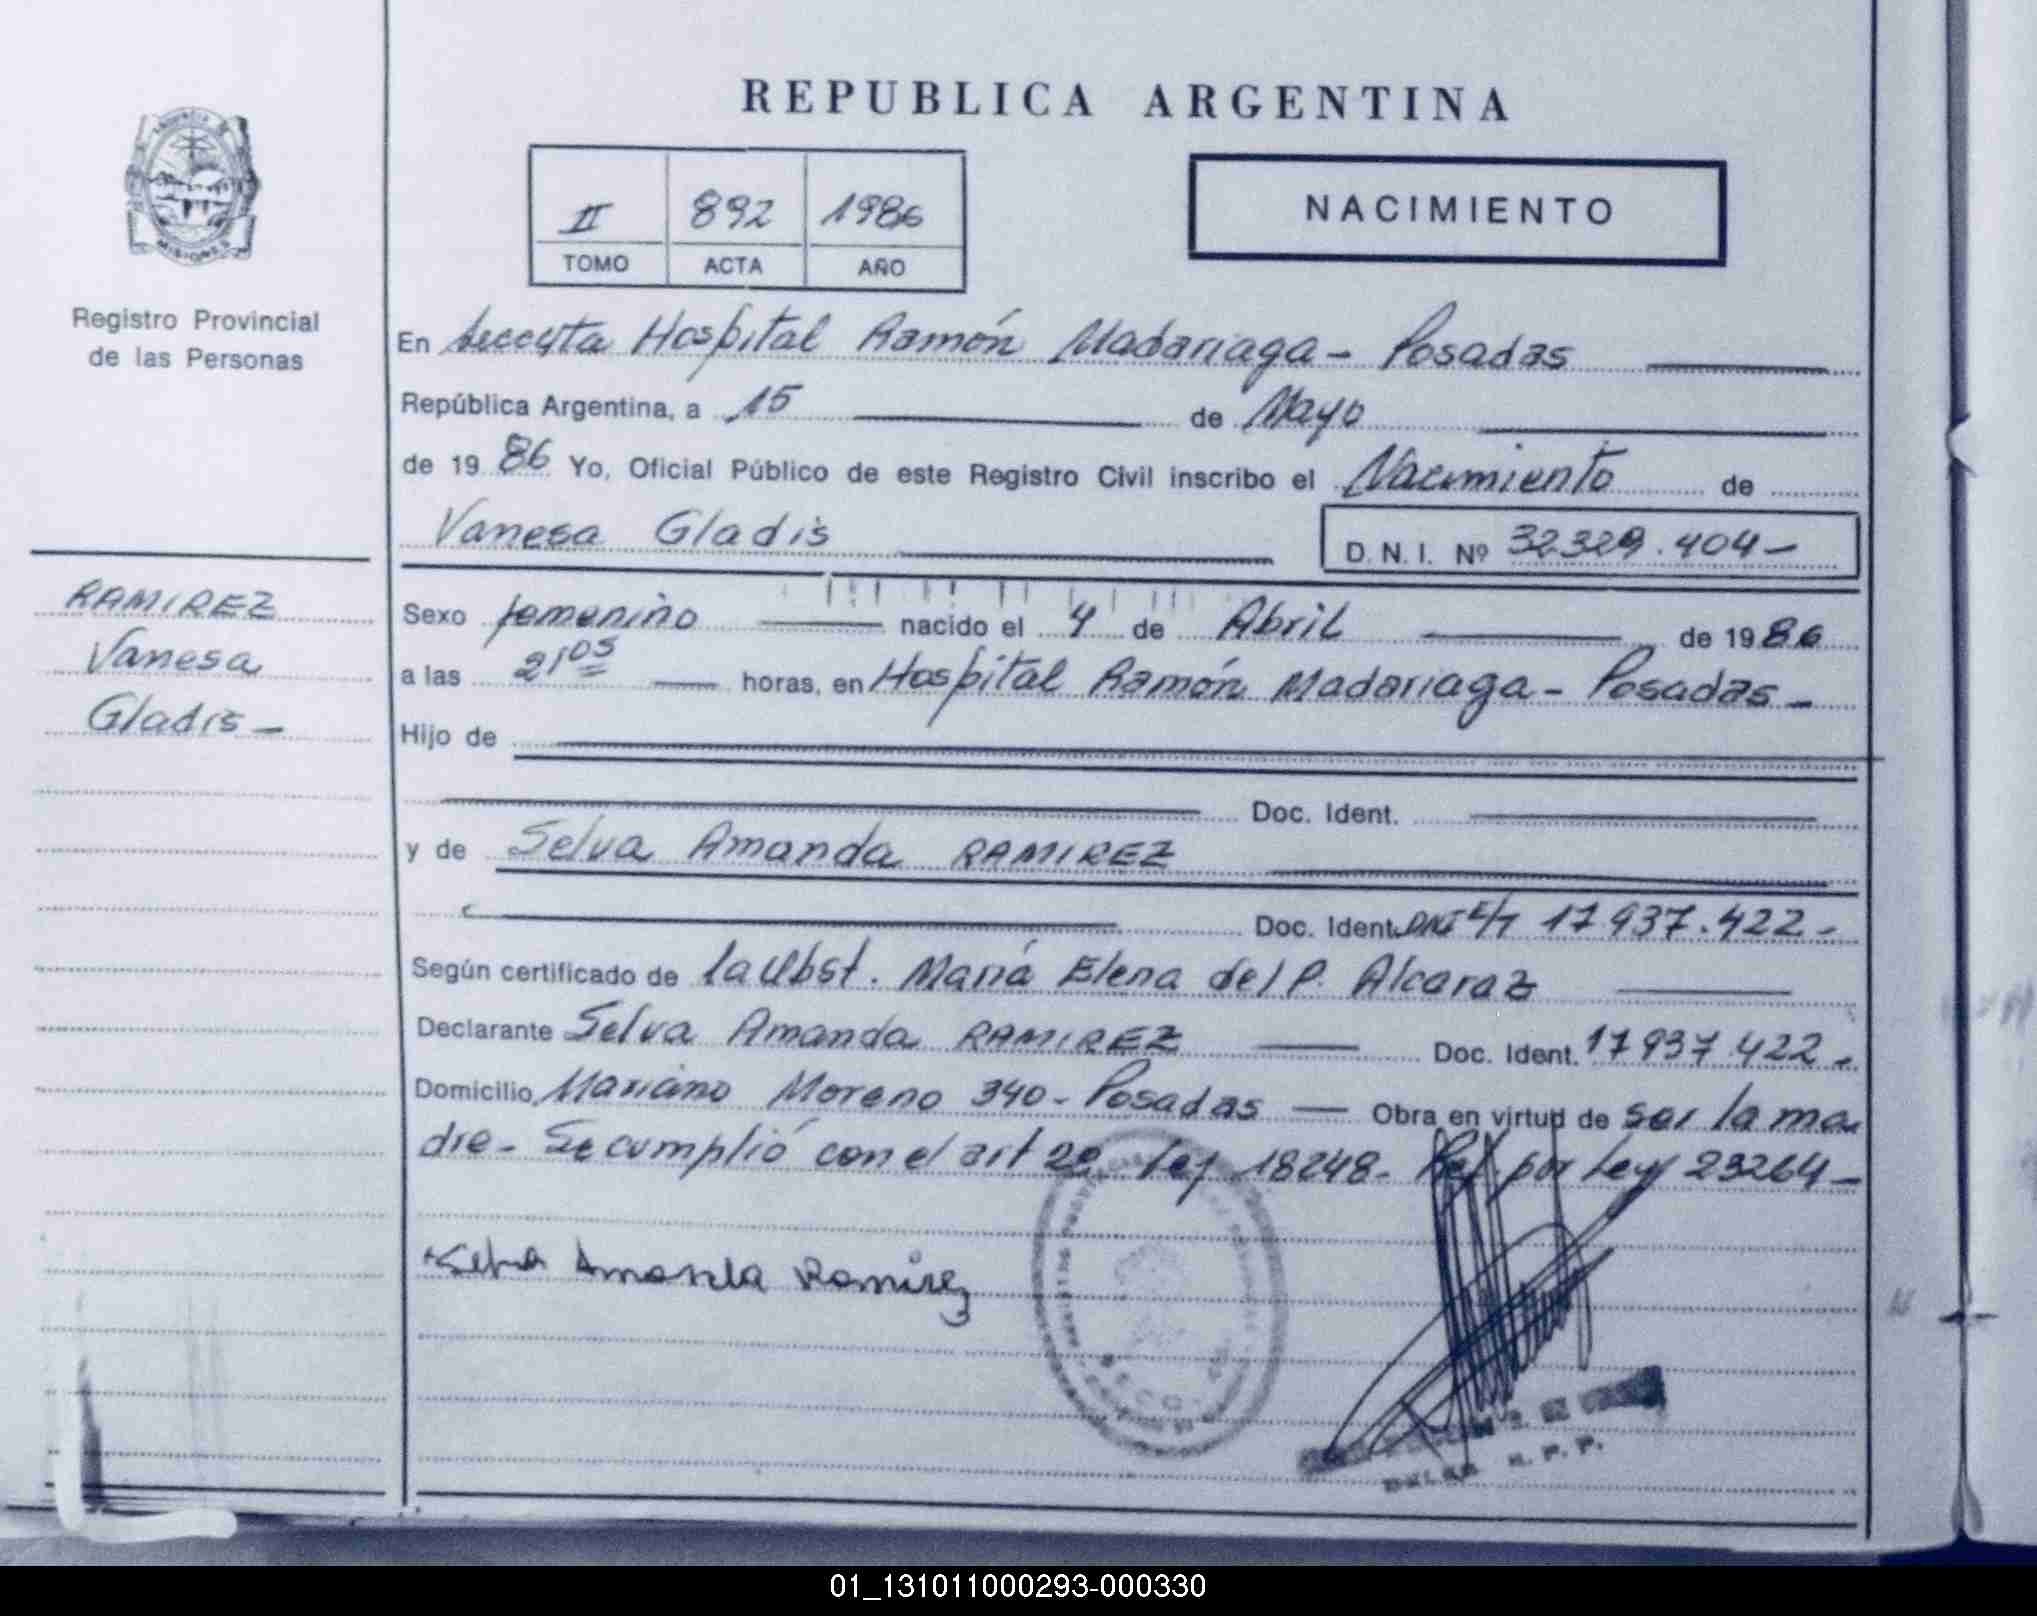 REPUBLICA ARGENTINA
II 892 1986
TOMO ACTA AÑO
NACIMIENTO
MISIONES
Registro Provincial
de las Personas
RAMIREZ
Vanesa
Gladis -
En Hospital Ramón Madariaga - Posadas
República Argentina, a 15 de Mayo
de 1986 Yo, Oficial Público de este Registro Civil inscribo el Nacimiento de
Vanesa Gladis D. N. I. Nº 32.329.404-
Sexo femenino nacido el 4 de Abril de 1986
a las 21 05 horas, en Hospital Ramón Madariaga - Posadas -
Hijo de
Doc. Ident.
y de Selva Amanda RAMIREZ
Doc. Ident. DNI E/T 17.937.422-
Según certificado de la Obst. María Elena del P. Alcaraz
Declarante Selva Amanda RAMIREZ Doc. Ident. 17.937.422-
Domicilio Mariano Moreno 340- Posadas Obra en virtud de ser la ma
dre - Se cumplió con el art 2º Ley 18248- Ref. por Ley 23264-
Selva Amanda Ramirez
R. P. P.
01_131011000293-000330